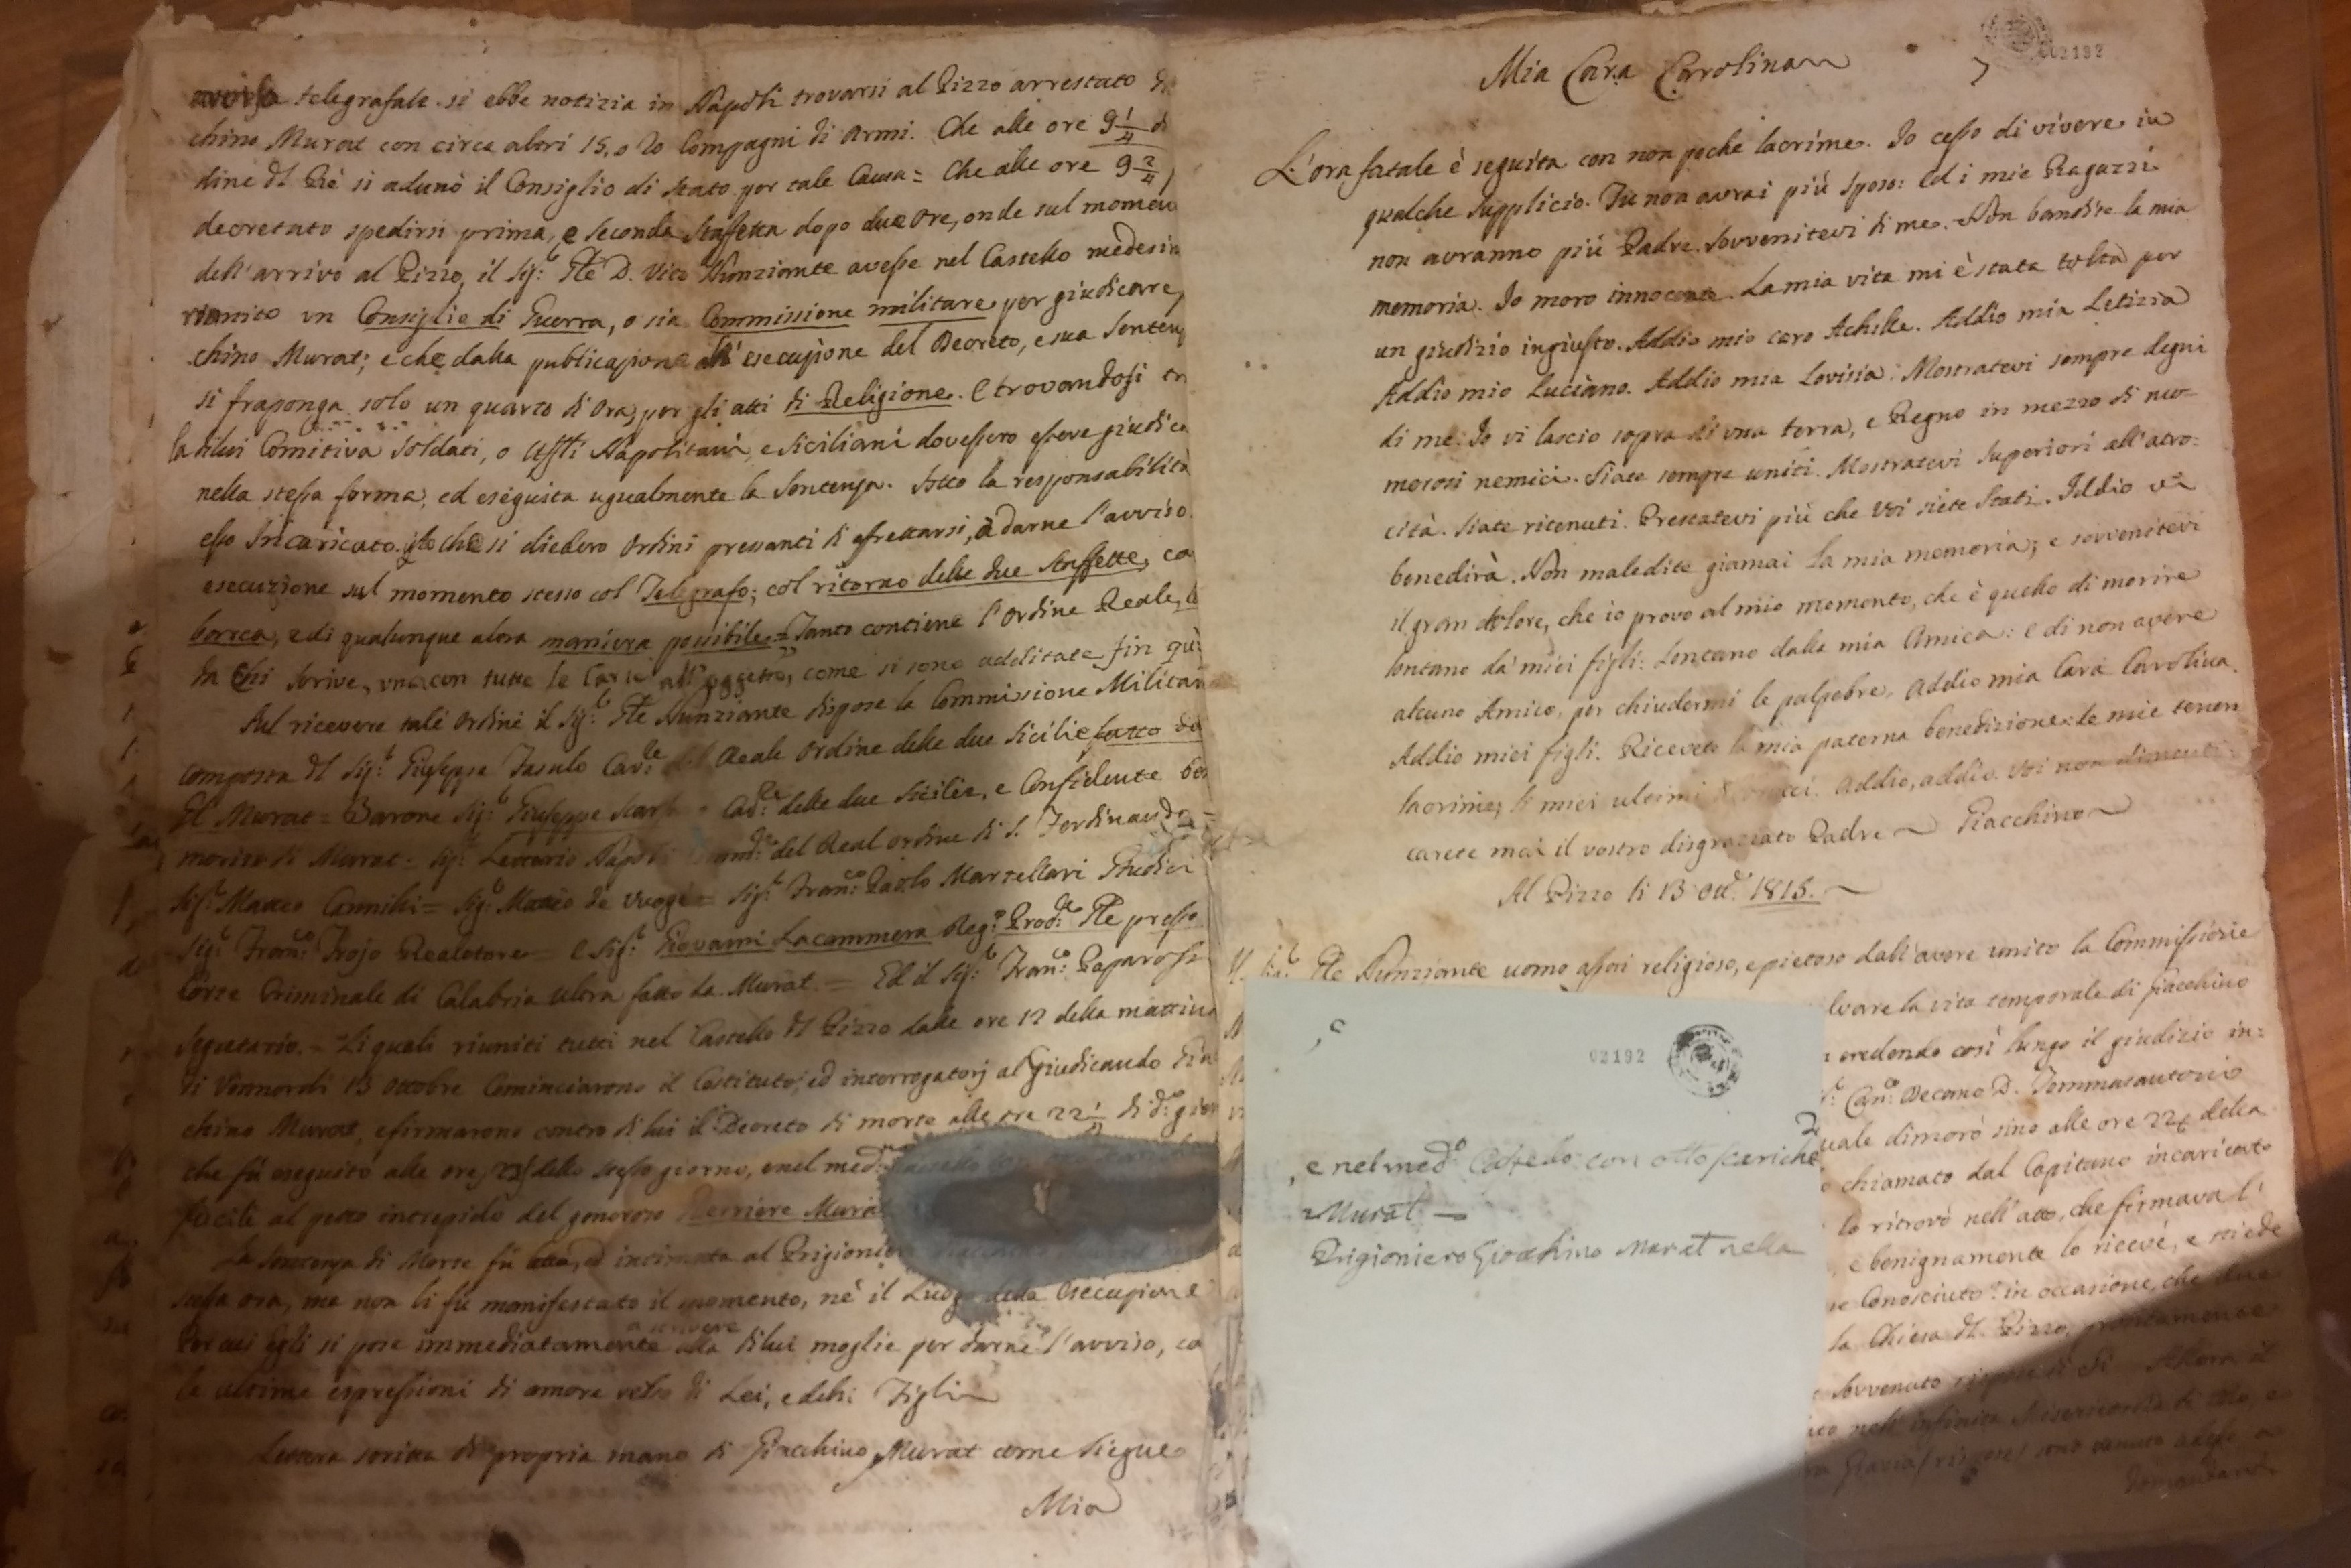 telegrafale si ebbe notizia in Napoli trovarsi al Pizzo arrestato
chino Murat con circa altri 15, o 20 Compagni di Armi. Che alle ore 9 1/4 di
dine dl Rè si adunò il Consiglio di Stato per tale Causa = Che alle ore 9 2/4
decretato spedirsi prima, e seconda Staffetta dopo due ore, onde sul momen
dell'arrivo al Pizzo, il Sig.r Gle D. Vito Nunziante avesse nel Castello medesim
riunito un Consiglio di Guerra, o sia Commissione militare per giudicare
chino Murat; e che dalla publicazione all'esecuzione del Decreto, e sua Senten
si fraponga solo un quarto di Ora, per gli atti di Religione. E trovandosi
la di lui Comitiva Soldati, o Uffli Napolitani, e Siciliani dovessero essere giudica
nella stessa forma, ed eseguita ugualmente la Sentenza. Sotto la responsabilità
esso Incaricato che si diedero Ordini pressanti di affrettarsi, à darne l'avviso
esecuzione sul momento stesso col Telegrafo; col ritorno delle due Staffette, co
barca, e di qualunque altra maniera possibile = Tanto contiene l'Ordine Reale,
da Chi scrive, una con tutte le Carte all'oggetto, come si sono additate fin quì
Nel ricevere tali Ordini il Sig.r Gle Nunziante dispose la Commissione Militar
composta dl Sig.r Giuseppe Fasulo Cav.re del Reale Ordine delle due Sicilie fatto
dl Murat = Barone Sig.r Giuseppe Scarf Cav.re delle due Sicilie, e Confidente
di Murat = Sig.r Letterio Napoli del Real Ordine di S. Ferdinando =
Sig.r Matteo Cannilli = Sig.r Matteo de Vuoge = Sig.r Fran.co Paolo Martellari Giudici
Sig.r Fran.co Frojo Realatore = e Sig.r Giovanni Lacammera Reg.o Prod.re Gle presso
Corte Criminale di Calabria Ultra fatto da Murat. = Ed il Sig.r Fran.co Paparossi
Segretario. = Li quali riuniti tutti nel Castello dl Pizzo dalle ore 12 della mattina
di Vennerdi 13 Ottobre Cominciarono il Costituto, ed interrogatorj al Giudicando Gia
chino Murat, e firmarono contro di lui il Decreto di morte alle ore 22 1/4 di d.o gior
che fù eseguito alle ore dello stesso giorno, e nel med.o
fucili al petto intrepido del generoso Murat
La Sentenza di Morte fù letta, ed intimata al Prigioniero
stessa ora, ma non li fù manifestato il momento, nè il Luogo della Esecuzione
Per cui Egli si pose immediatamente a scrivere alla di lui moglie per darne l'avviso, co
le ultime espressioni di amore verso di Lei, e delli Figli
Lettera scritta di propria mano di Giacchino Murat come siegue
Mia
02192
Mia Cara Carolina
L'ora fatale è seguita con non poche lacrime. Io cesso di vivere in
qualche supplicio. Tu non avrai più Sposo: Ed i mie Ragazzi
non avranno più Padre. Sovvenitevi di me. Non bandite la mia
memoria. Io moro innocente. La mia vita mi è stata tolta per
un giudizio ingiusto. Addio mio caro Achille. Addio mia Letizia
Addio mio Luciano. Addio mia Lovisia: Mostratevi sempre degni
di me. Io vi lascio sopra di una terra, e Regno in mezzo di nu=
merosi nemici. Siate sempre uniti. Mostratevi Superiori all'atro=
cità. Siate ritenuti. Prestatevi più che Voi siete Stati. Iddio vi
benedirà. Non maledite giamai la mia memoria; e sovvenitevi
il gran dolore, che io provo al mio momento, che è quello di morire
lontano da' miei figli: Lontano dalla mia Amica: e di non avere
alcuno Amico, per chiudermi le palpebre. Addio mia Cara Carolina.
Addio miei figli. Ricevete la mia paterna benedizione: le mie tenere
lacrime, li miei ultimi. Addio, addio. Voi non dimenti=
carete mai il vostro disgraziato Padre Giacchino
Al Pizzo li 13 Ott.e 1815.
Gle Nunziante uomo assai religioso, e pietoso dall'avere unito la Commissione
lvare la vita temporale di Giacchino
credendo così lungo il giudizio in=
Can.co Decano D. Tommasantonio
quale dimorò sino alle ore 22 della
chiamato dal Capitano incaricato
lo ritrovò nell'atto, che firmava l'
, e benignamente lo ricevè, e siede
Conosciuto in occasione, che due
la Chiesa dl Pizzo, prontamente
Sovvenuto rispose di Sì. Allora il
nell'infinita Misericordia di Dio, e
sono venuto adesso a
domandarvi
02192
, e nel med.o Castello con otto scariche
Murat —
Prigioniero Gioachino Murat nella